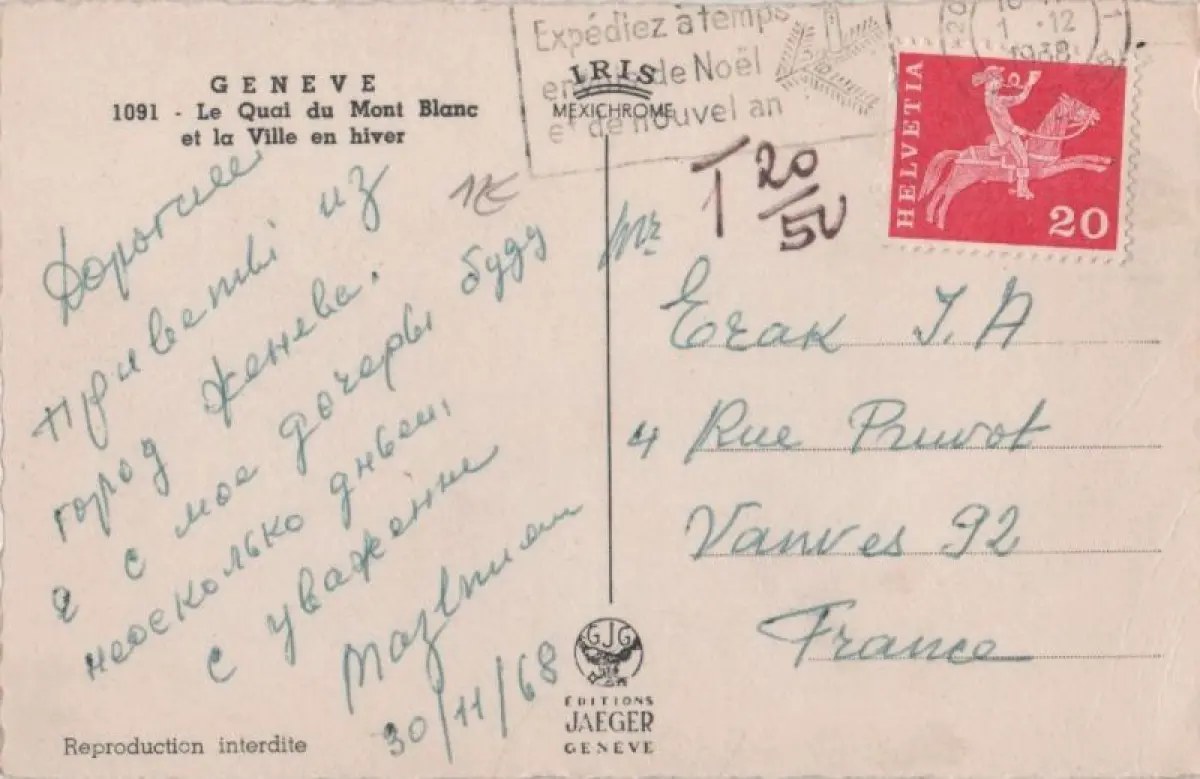 GENEVE
1091 - Le Quai du Mont Blanc
et la Ville en hiver
Expédiez à temps
de Noël
et de nouvel an
IRIS
MEXICHROME
1 -12
HELVETIA
20
T 20/50
1€
Дорогие
приветы из
город Женева.
я с мое дочеры буду
несколько дньеи,
с уважение
30/11/68
Mr
Erak J. A
4 Rue Pruvot
Vanves 92
France
GJG
EDITIONS
JAEGER
GENÈVE
Reproduction interdite